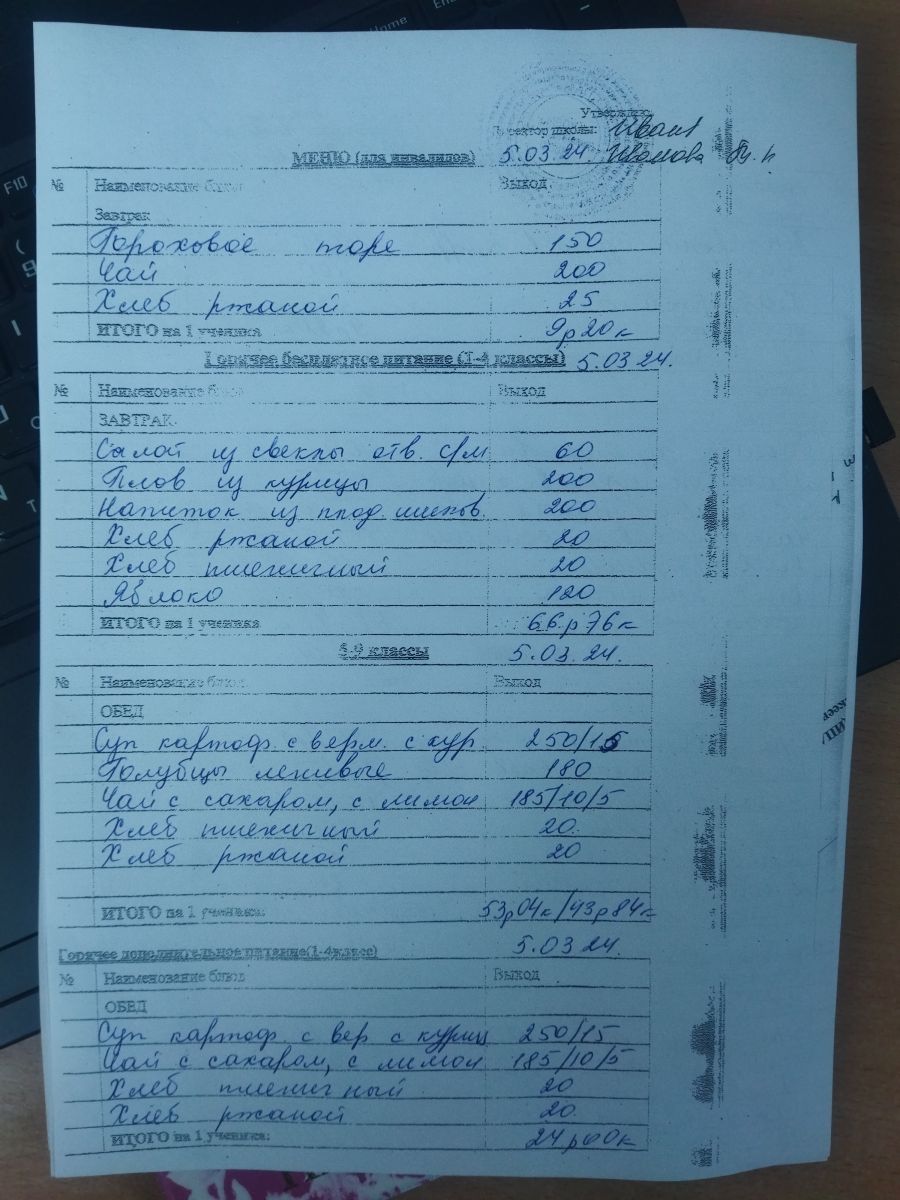 Утверждаю:
Директор школы:
МЕНЮ (для инвалидов) 5.03.24.
№ Наименование блюд Выход
Завтрак
Гороховое пюре 150
Чай 200
Хлеб ржаной 25
ИТОГО на 1 ученика 9р20к
Горячее бесплатное питание (1-4 классы) 5.03.24.
№ Наименование блюд Выход
ЗАВТРАК
Салат из свеклы отв. с/м 60
Плов из курицы 200
Напиток из плод. шипов. 200
Хлеб ржаной 20
Хлеб пшеничный 20
Яблоко 120
ИТОГО на 1 ученика 66р76к
5-9 классы 5.03.24.
№ Наименование блюд Выход
ОБЕД
Суп картоф. с верм. с кур 250/15
Голубцы ленивые 180
Чай с сахаром, с лимон 185/10/5
Хлеб пшеничный 20
Хлеб ржаной 20
ИТОГО на 1 ученика: 53р04к/43р84к
Горячее дополнительное питание(1-4класс) 5.03.24.
№ Наименование блюд Выход
ОБЕД
Суп картоф. с вер с куриц 250/15
Чай с сахаром, с лимон 185/10/5
Хлеб пшеничный 20
Хлеб ржаной 20
ИТОГО на 1 ученика: 24р00к